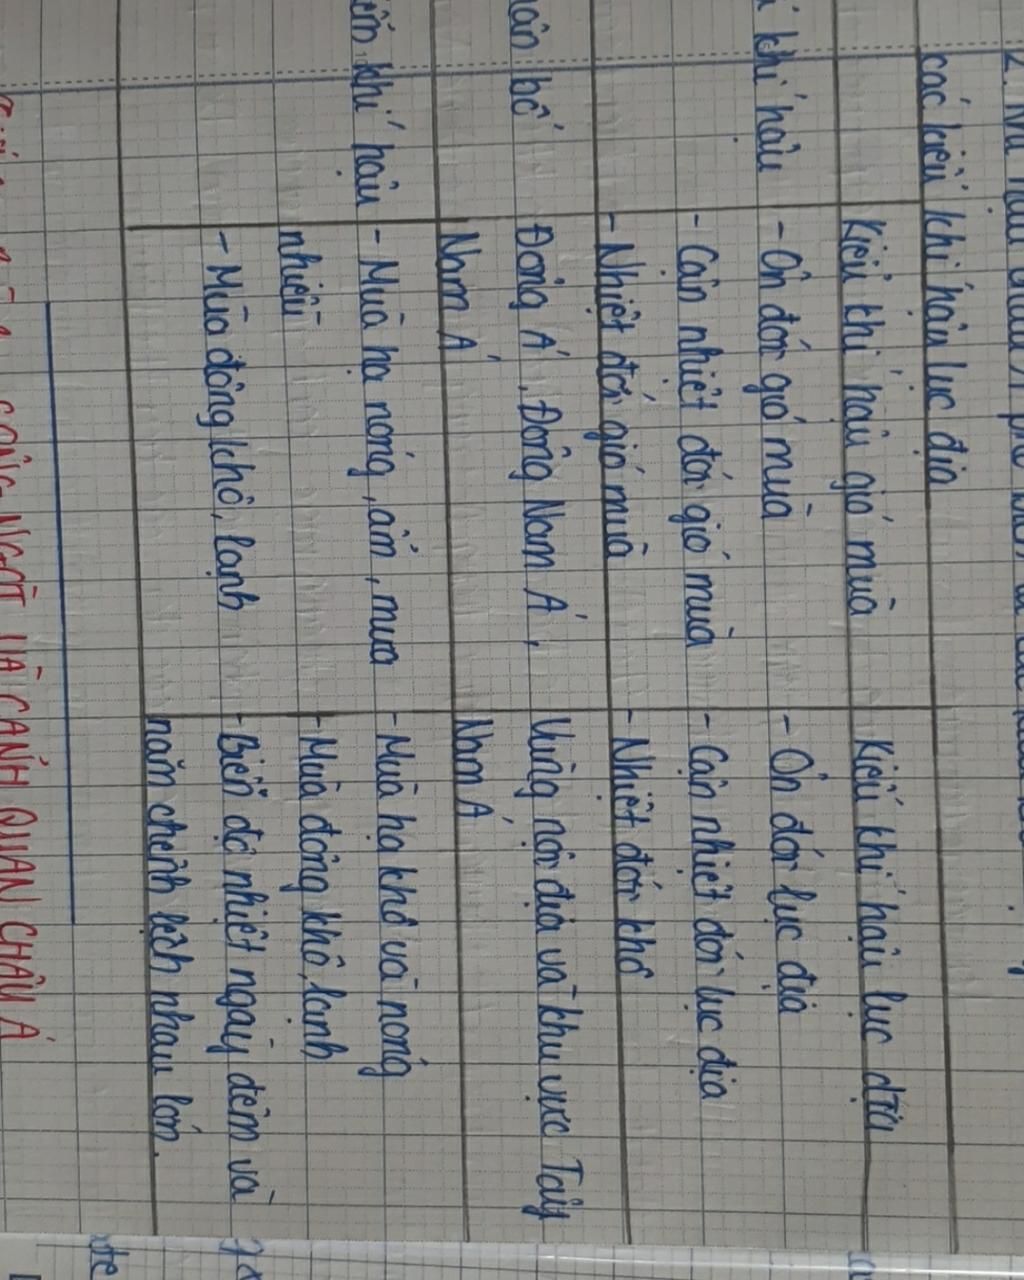 các kiểu khí hậu lục địa
Kiểu khí hậu gió mùa
Kiểu khí hậu lục địa
khí hậu
- Ôn đới gió mùa
- Ôn đới lục địa
- Cận nhiệt đới gió mùa
- Cận nhiệt đới lục địa
- Nhiệt đới gió mùa
- Nhiệt đới khô
bố
Đông Á, Đông Nam Á,
Vùng nội địa và khu vực Tây
Nam Á
Nam Á
khí hậu
- Mùa hạ nóng, ẩm, mưa
- Mùa hạ khô và nóng
nhiều
- Mùa đông khô, lạnh
- Mùa đông khô, lạnh
- Biên độ nhiệt ngày đêm và
năm chênh lệch nhau lớn.
NGÒI VÀ CẢNH QUAN CHÂU Á